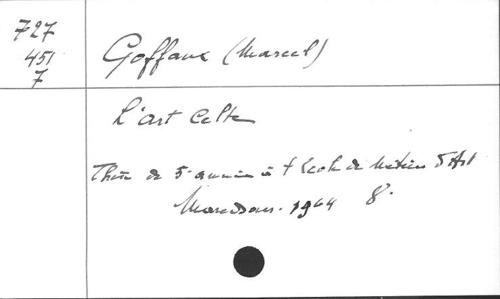 727
451
7
Goffaux (Marcel)
L'art Celte
Thèse de 5e année à l'Ecole de Métiers d'Art
Maredsous. 1964 8°.